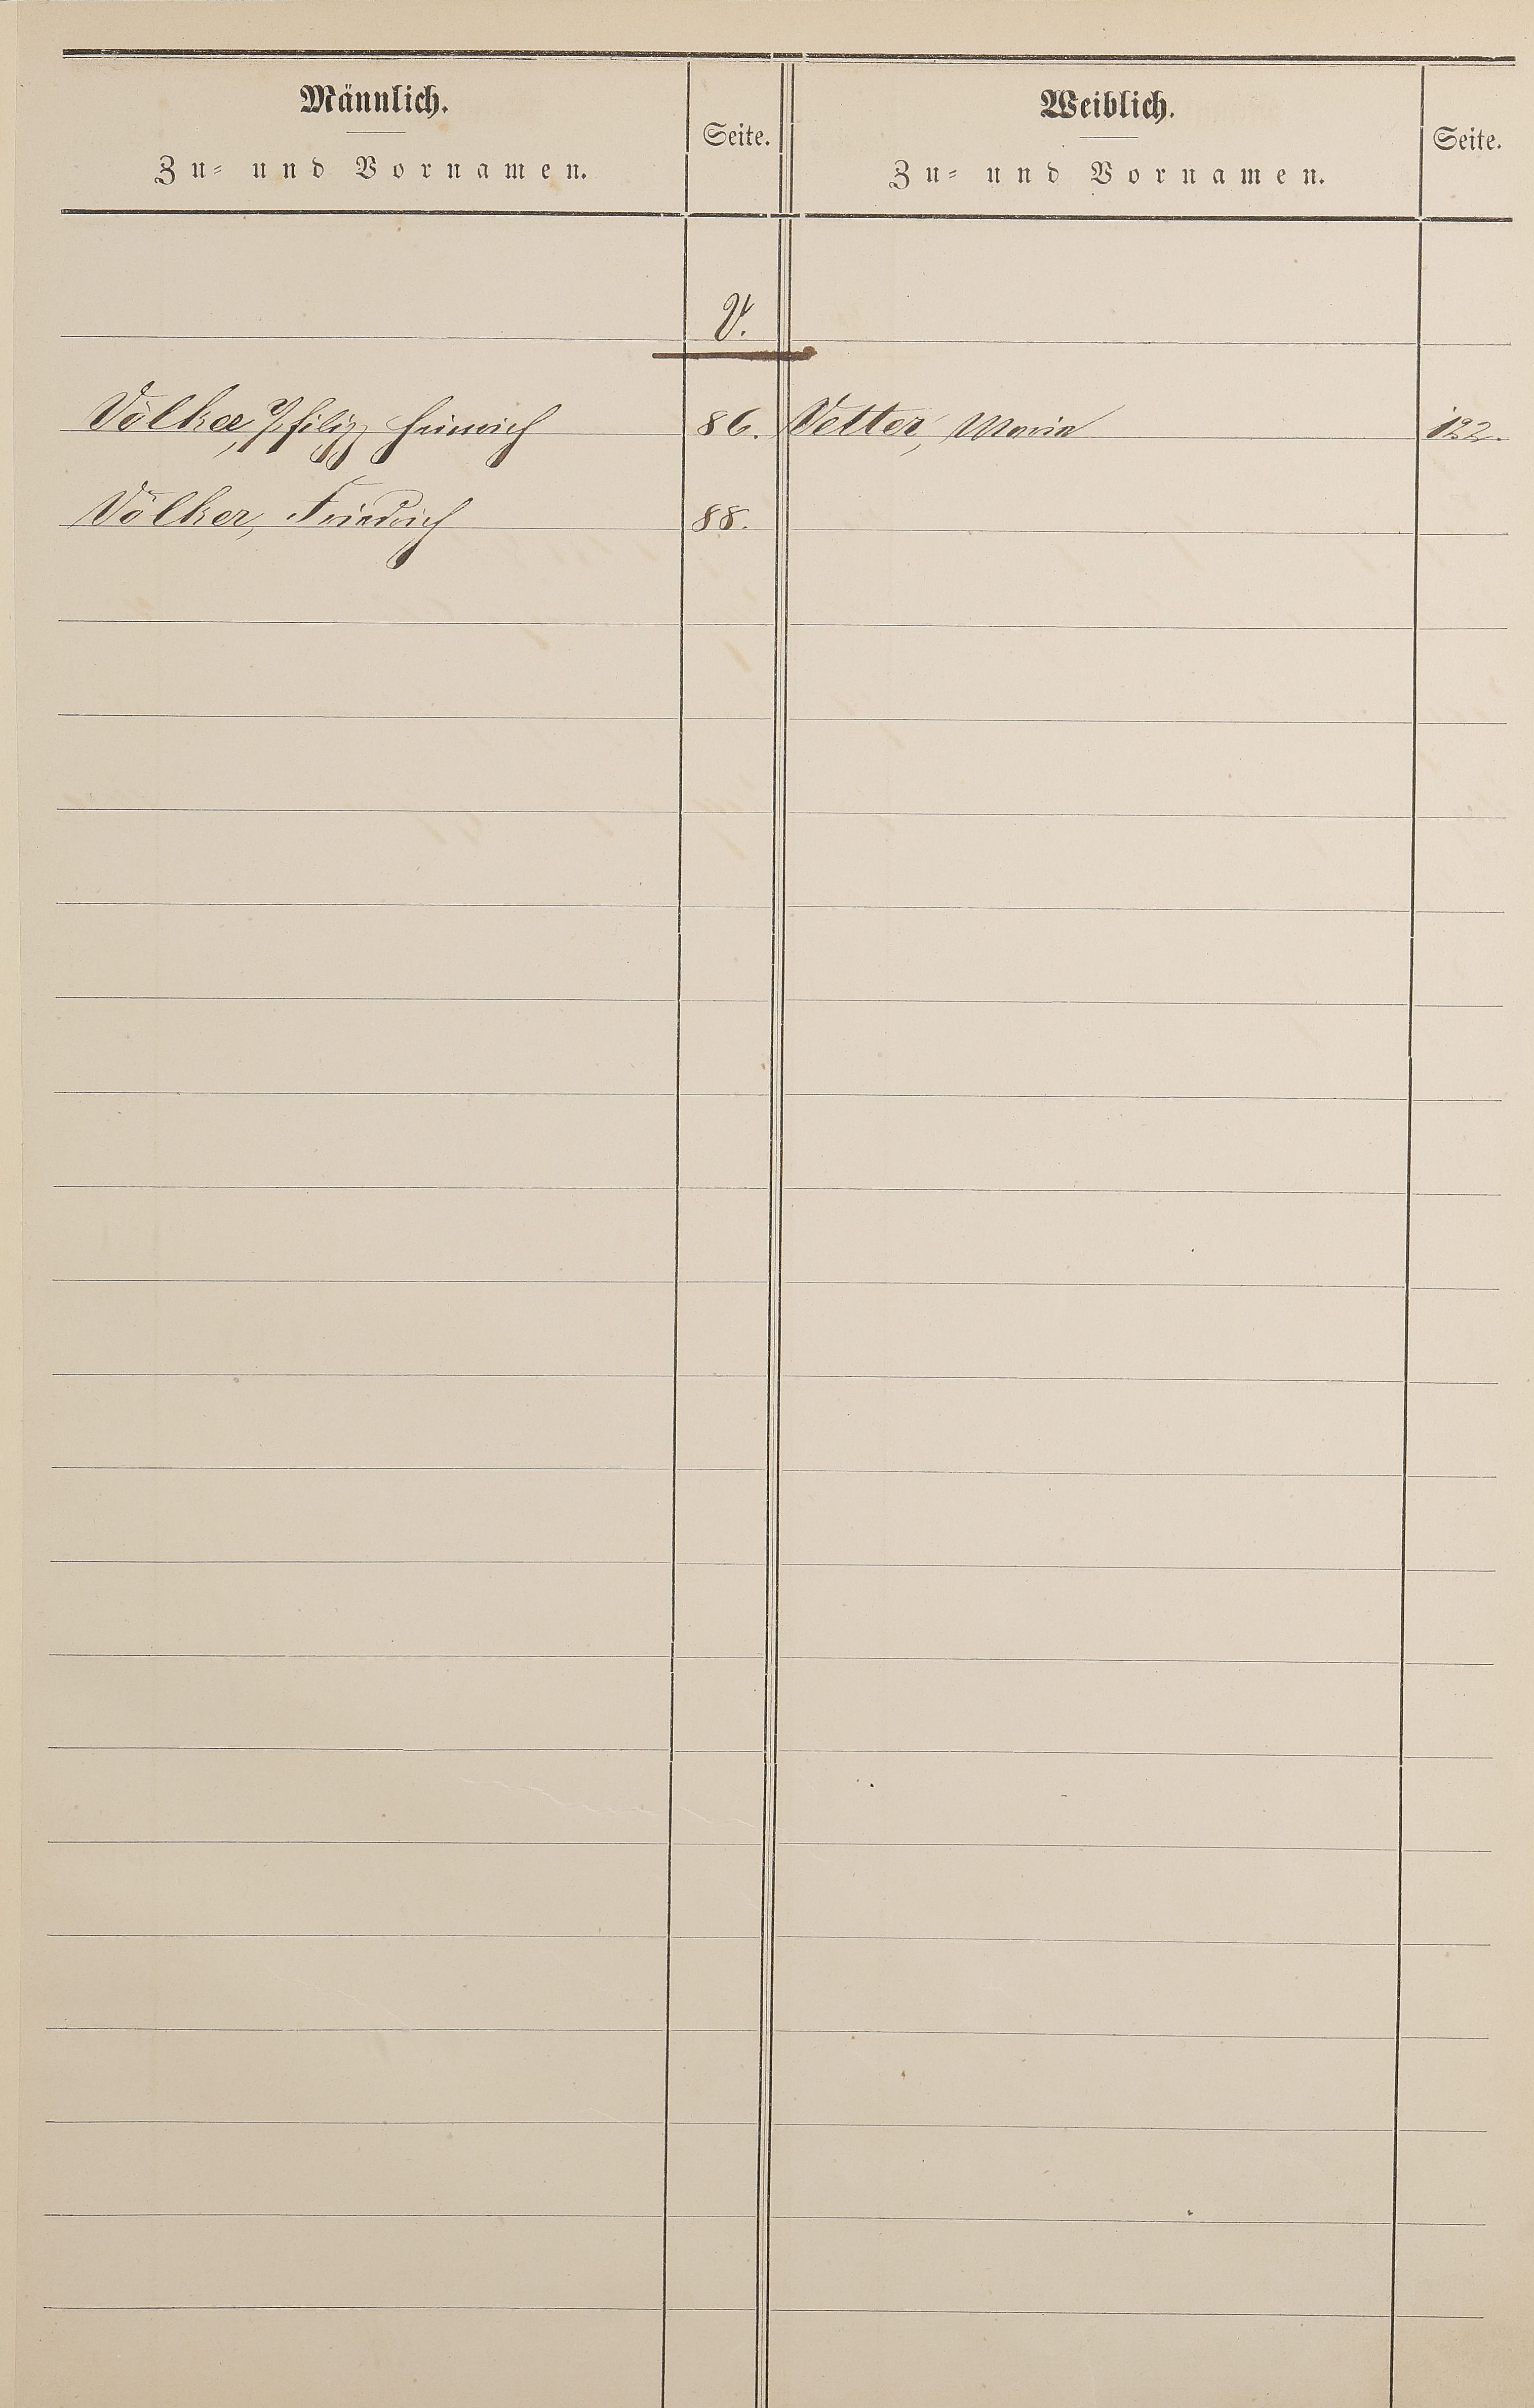 Männlich.
Zu- und Vornamen.
Seite.
Weiblich.
Zu- und Vornamen.
Seite.
V.
Völker, Philipp Heinrich 86. Vetter, Maria 122.
Völker, Friedrich 88.